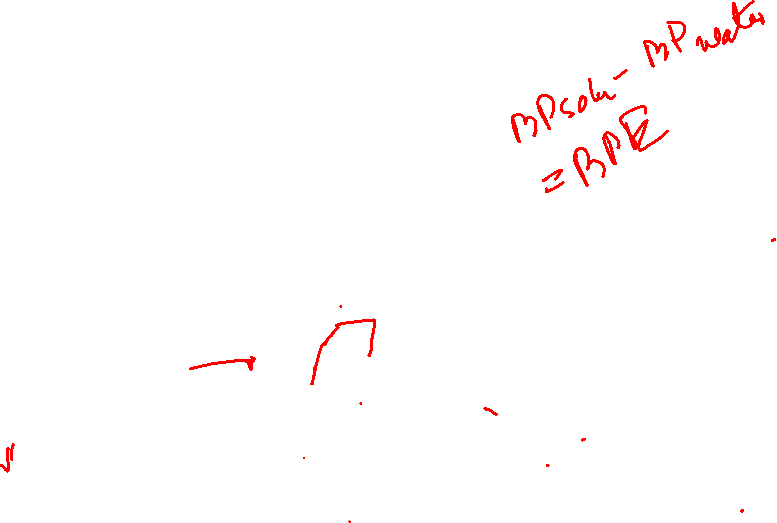 BPsoln - BPwater
= BPE